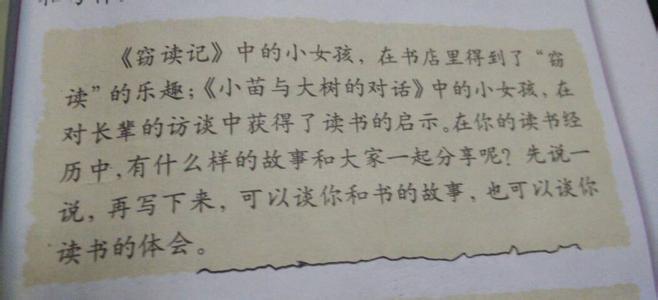 《窃读记》中的小女孩，在书店里得到了“窃
读”的乐趣；《小苗与大树的对话》中的小女孩，在
对长辈的访谈中获得了读书的启示。在你的读书经
历中，有什么样的故事和大家一起分享呢？先说一
说，再写下来，可以谈你和书的故事，也可以谈你
读书的体会。